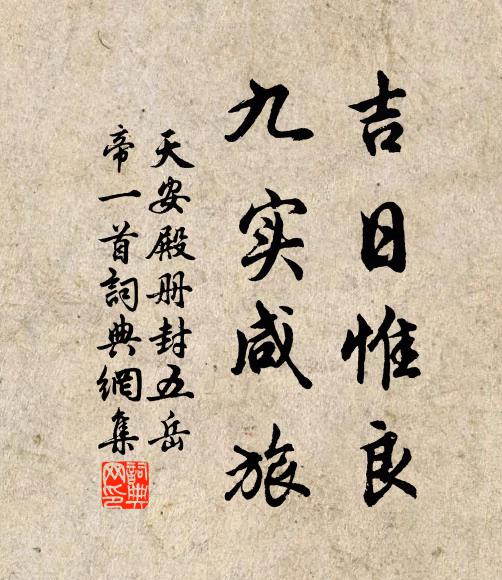 吉日惟良
九实咸旅
天安殿册封五岳
帝一首詞典網集
詞典網印